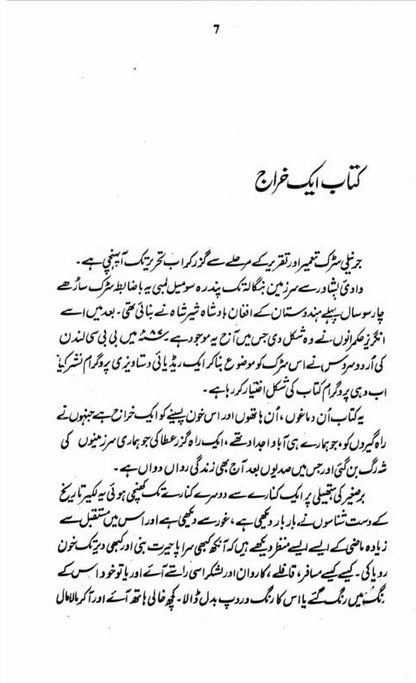 7
کتاب ایک خراج
جرنیلی سڑک تعمیر اور تقریر کے مرحلے سے گزر کر اب تحریر تک آ پہنچی ہے۔
وادیٔ پشاور سے سرزمین بنگالہ تک پندرہ سو میل لمبی یہ باضابطہ سڑک ساڑھے
چار سو سال پہلے ہندوستان کے افغان بادشاہ شیر شاہ نے بنائی تھی۔ بعد میں اسے
انگریز حکمرانوں نے وہ شکل دی جس میں آج یہ موجود ہے۔ میں بی بی سی لندن
کی اُردو سروس نے اس سڑک کو موضوع بنا کر ایک ریڈیائی دستاویزی پروگرام نشر کیا
اب وہی پروگرام کتاب کی شکل اختیار کر رہا ہے۔
یہ کتاب اُن دماغوں، اُن ہاتھوں اور اس خون پسینے کو ایک خراج ہے جنہوں نے
راہگیروں کو، جو ہمارے ہی آباء و اجداد تھے، ایک راہ گزر عطا کی جو ہماری سرزمینوں کی
شہ رگ بن گئی اور جس میں صدیوں بعد آج بھی زندگی رواں دواں ہے۔
برصغیر کی ہتھیلی پر ایک کنارے سے دوسرے کنارے تک کھنچی ہوئی یہ لکیر تاریخ
کے دست شناسوں نے بار بار دیکھی ہے، غور سے دیکھی ہے اور اس میں مستقبل سے
زیادہ ماضی کے ایسے ایسے منظر دیکھے ہیں کہ آنکھ کبھی سراپا حیرت بنی اور کبھی دیر تک خون
رویا کی۔ کیسے کیسے مسافر، قافلے، کارواں اور لشکر اسی راستے آئے اور یا تو خود اس کے
رنگ میں رنگ گئے یا اس کا رنگ و روپ بدل ڈالا۔ کچھ خالی ہاتھ آئے اور آکر مالا مال